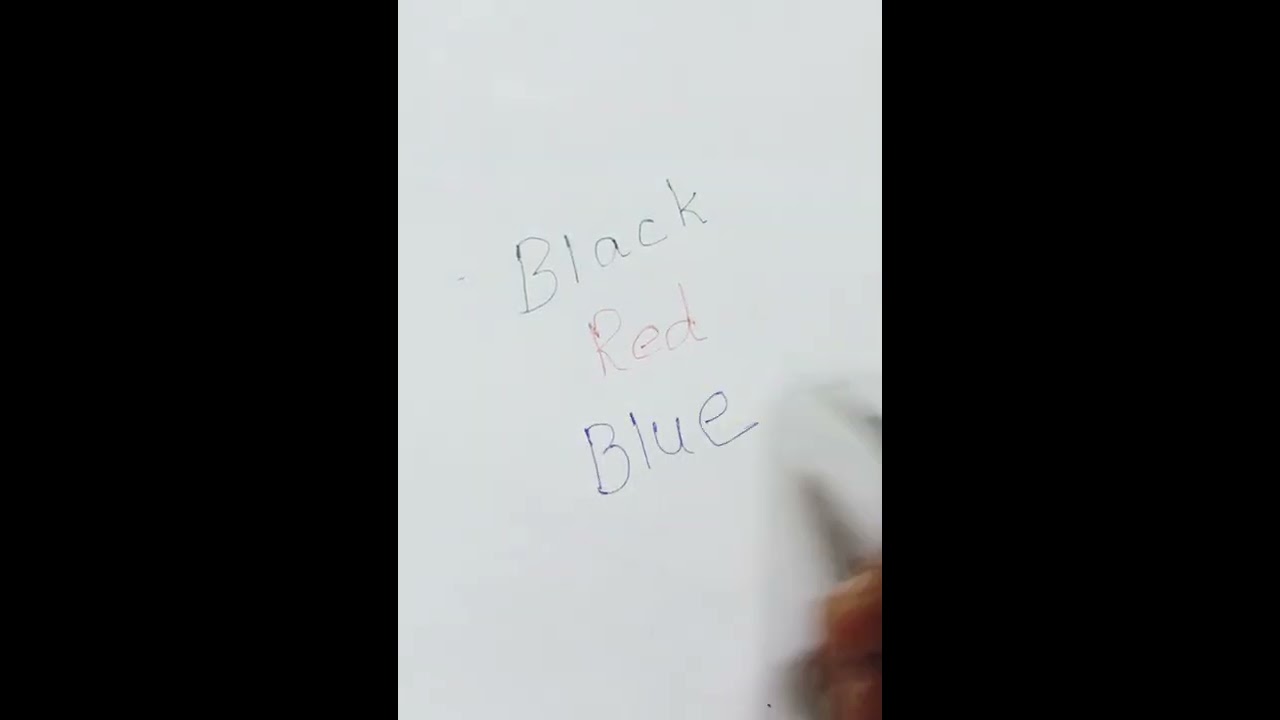 Black
Red
Blue